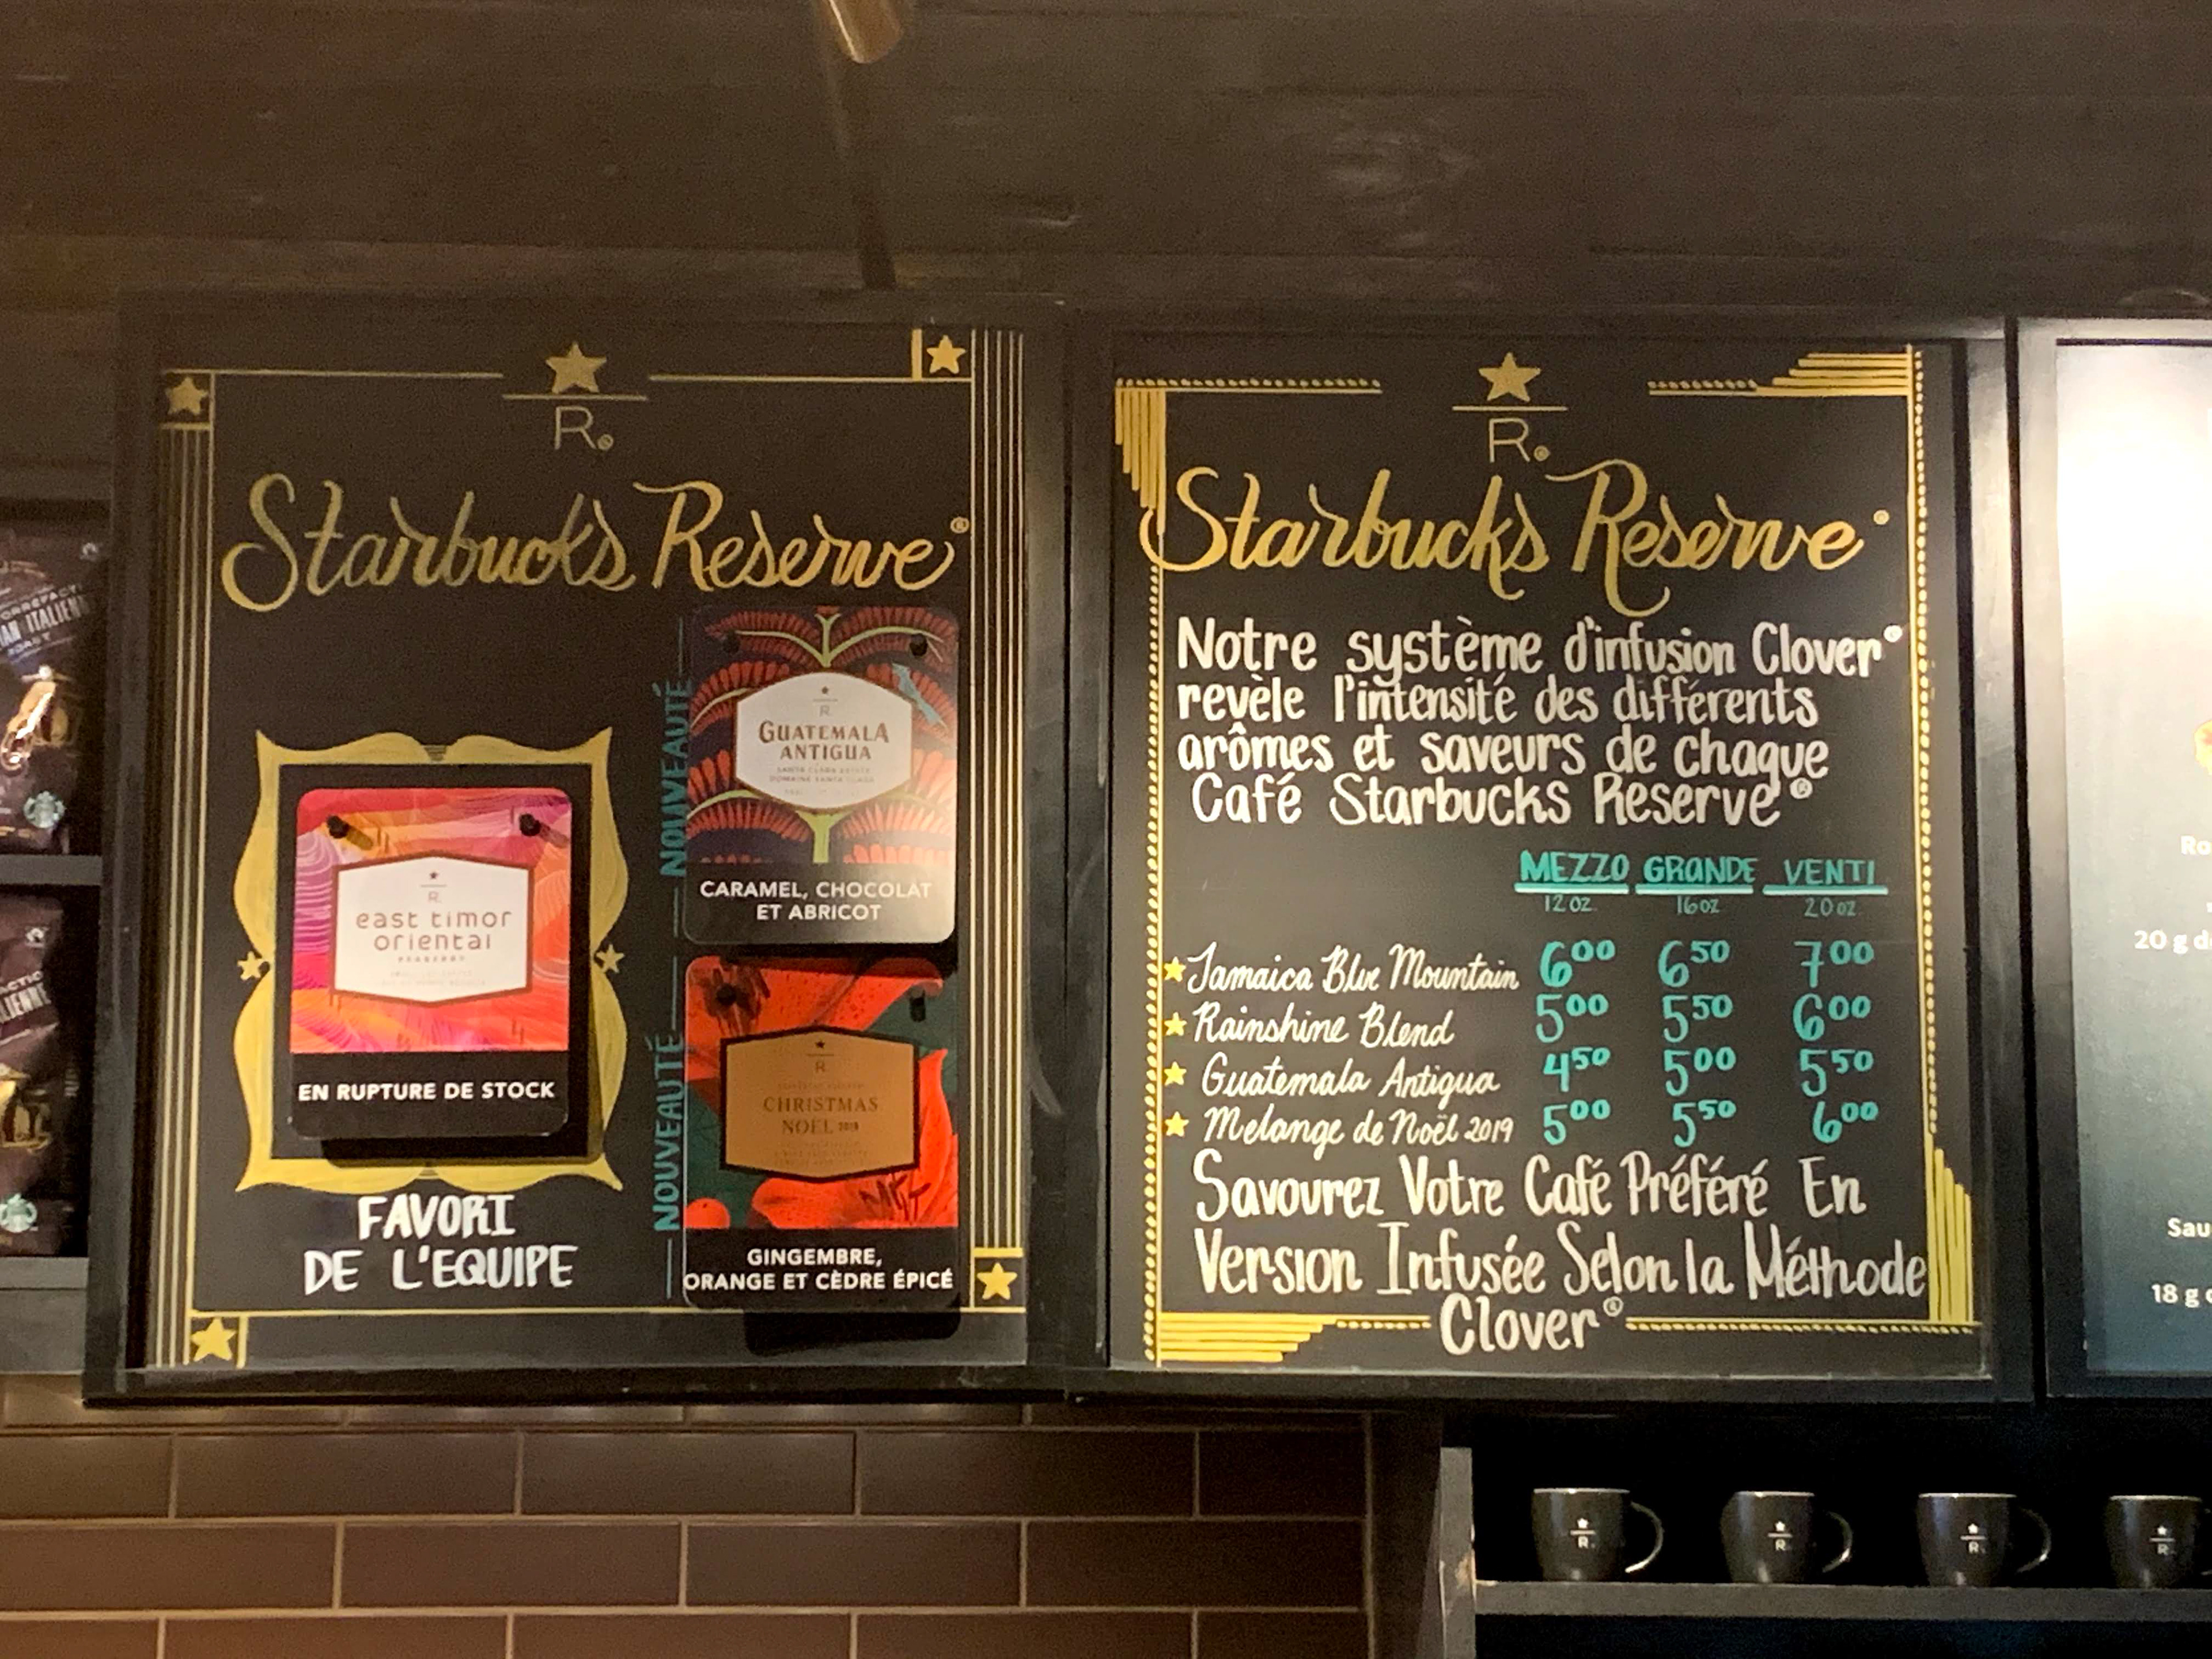 R®
Starbucks Reserve®
NOUVEAUTÉ
R
GUATEMALA
ANTIGUA
SANTA CLARA ESTATE
DOMAINE SANTA CLARA
CARAMEL, CHOCOLAT
ET ABRICOT
R
east timor
oriental
PEABERRY
EN RUPTURE DE STOCK
FAVORI
DE L'EQUIPE
NOUVEAUTÉ
R
CHRISTMAS
NOËL 2019
GINGEMBRE,
ORANGE ET CÈDRE ÉPICÉ
R®
Starbucks Reserve®
Notre système d'infusion Clover®
revèle l'intensité des différents
arômes et saveurs de chaque
Café Starbucks Reserve®
MEZZO GRANDE VENTI
12 oz. 16 oz 20 oz.
Jamaica Blue Mountain 6⁰⁰ 6⁵⁰ 7⁰⁰
Rainshine Blend 5⁰⁰ 5⁵⁰ 6⁰⁰
Guatemala Antigua 4⁵⁰ 5⁰⁰ 5⁵⁰
Melange de Noël 2019 5⁰⁰ 5⁵⁰ 6⁰⁰
Savourez Votre Café Préféré En
Version Infusée Selon la Méthode
Clover®
Ro
20 g d
Sau
18 g
R
R
R
R